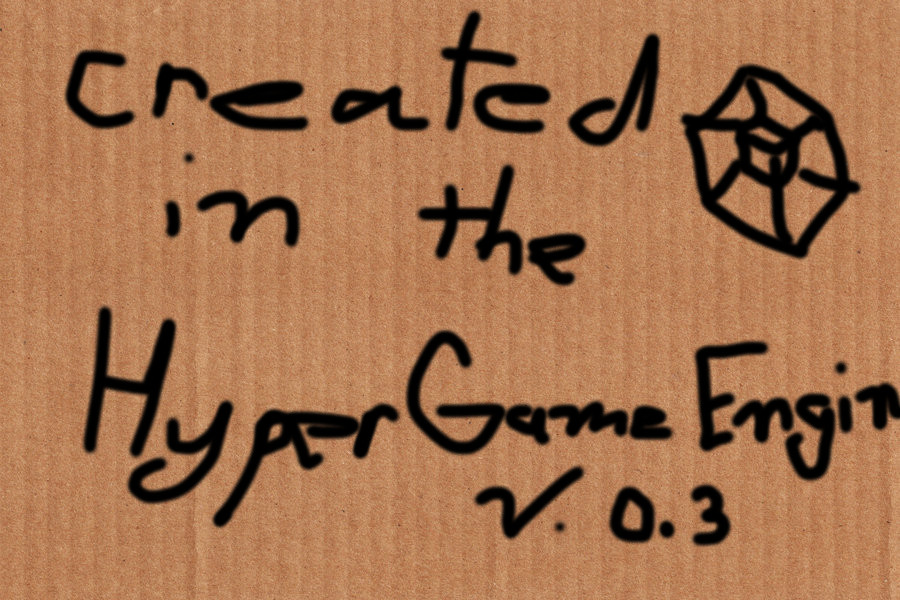 created
in the
HyperGame Engin
v. 0.3